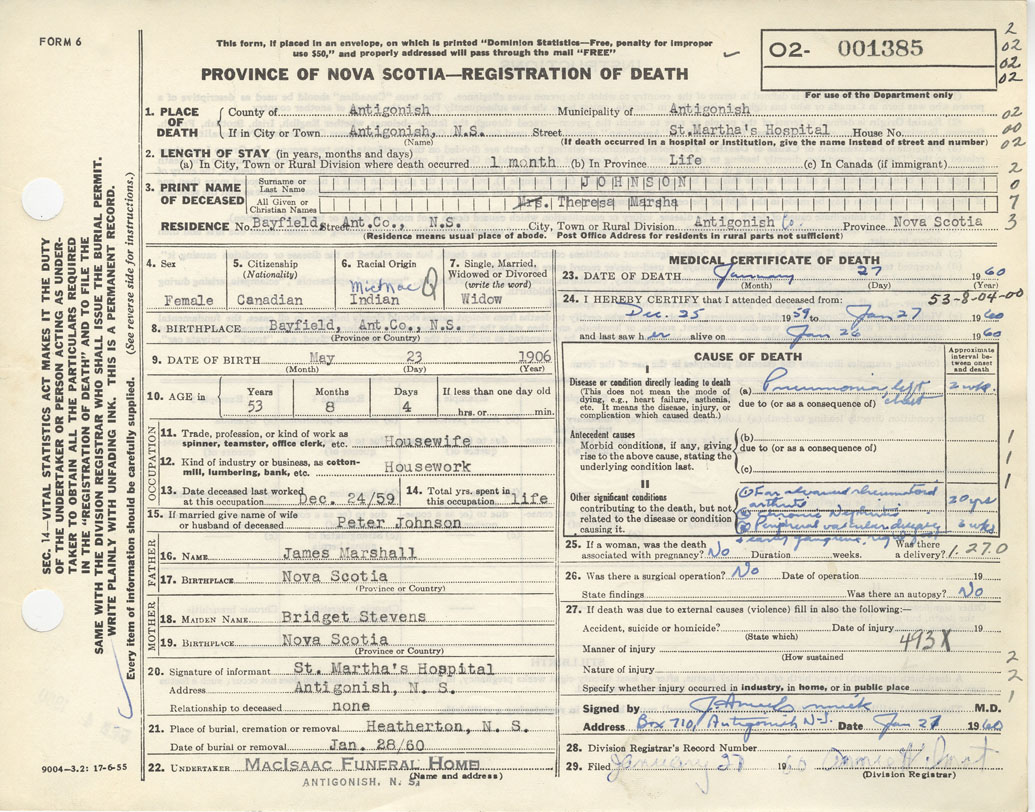 FORM 6
This form, if placed in an envelope, on which is printed "Dominion Statistics—Free, penalty for improper
use $50," and properly addressed will pass through the mail "FREE"
PROVINCE OF NOVA SCOTIA—REGISTRATION OF DEATH
O2- 001385
For use of the Department only
2
02
02
02
1. PLACE OF DEATH County of Antigonish Municipality of Antigonish
If in City or Town Antigonish, N.S. Street St.Martha's Hospital House No.
(Name) (If death occurred in a hospital or institution, give the name instead of street and number)
02
00
02
2. LENGTH OF STAY (in years, months and days)
(a) In City, Town or Rural Division where death occurred 1 month (b) In Province Life (c) In Canada (if immigrant)
2
3. PRINT NAME OF DECEASED Surname or Last Name JOHNSON
0
All Given or Christian Names Mrs. Theresa Marsha
7
RESIDENCE No. Bayfield, Street Ant.Co., N.S. City, Town or Rural Division Antigonish Co. Province Nova Scotia
3
(Residence means usual place of abode. Post Office Address for residents in rural parts not sufficient)
4. Sex
Female
5. Citizenship
(Nationality)
Canadian
6. Racial Origin
MicMac
Indian
7. Single, Married, Widowed or Divorced
(write the word)
Widow
8. BIRTHPLACE Bayfield, Ant.Co., N.S.
(Province or Country)
9. DATE OF BIRTH May 23 1906
(Month) (Day) (Year)
10. AGE in Years Months Days If less than one day old
53 8 4 hrs. or min.
OCCUPATION
11. Trade, profession, or kind of work as
spinner, teamster, office clerk, etc. Housewife
12. Kind of industry or business, as cotton-
mill, lumbering, bank, etc. Housework
13. Date deceased last worked
at this occupation Dec. 24/59
14. Total yrs. spent in
this occupation life
15. If married give name of wife
or husband of deceased Peter Johnson
FATHER
16. NAME James Marshall
17. BIRTHPLACE Nova Scotia
(Province or Country)
MOTHER
18. MAIDEN NAME Bridget Stevens
19. BIRTHPLACE Nova Scotia
(Province or Country)
20. Signature of informant St. Martha's Hospital
Address Antigonish, N. S.
Relationship to deceased none
21. Place of burial, cremation or removal Heatherton, N. S.
Date of burial or removal Jan. 28/60
22. UNDERTAKER MACISAAC FUNERAL HOME
(Name and address)
ANTIGONISH, N. S.
MEDICAL CERTIFICATE OF DEATH
23. DATE OF DEATH January 27 1960
(Month) (Day) (Year)
24. I HEREBY CERTIFY that I attended deceased from: 53-8-04-00
Dec. 25 1959 to Jan 27 1960
and last saw her alive on Jan 26 1960
CAUSE OF DEATH
Approximate interval between onset and death
I
Disease or condition directly leading to death
(This does not mean the mode of
dying, e.g., heart failure, asthenia,
etc. It means the disease, injury, or
complication which caused death.)
(a) Pneumonia left chest 2 wks.
due to (or as a consequence of)
Antecedent causes
Morbid conditions, if any, giving
rise to the above cause, stating the
underlying condition last.
(b)
due to (or as a consequence of)
(c)
1
1
1
II
Other significant conditions
contributing to the death, but not
related to the disease or condition
causing it.
(1) Far advanced rheumatoid arthritis 20 yrs
(2) Chronic Nephritis
(3) Peripheral vascular disease
25. If a woman, was the death
associated with pregnancy? No Duration weeks. Was there
a delivery? 1.270
26. Was there a surgical operation? No Date of operation 19
State findings Was there an autopsy? No
27. If death was due to external causes (violence) fill in also the following:—
Accident, suicide or homicide? Date of injury 19
(State which)
Manner of injury 493X
(How sustained
2
Nature of injury
2
Specify whether injury occurred in industry, in home, or in public place
1
Signed by M.D.
Address Box 710/ Antigonish N.S. Date Jan 27 1960
28. Division Registrar's Record Number
29. Filed January 28 1960
(Division Registrar)
SEC. 14—VITAL STATISTICS ACT MAKES IT THE DUTY
OF THE UNDERTAKER OR PERSON ACTING AS UNDER-
TAKER TO OBTAIN ALL THE PARTICULARS REQUIRED
IN THE "REGISTRATION OF DEATH" AND TO FILE THE
SAME WITH THE DIVISION REGISTRAR WHO SHALL ISSUE THE BURIAL PERMIT.
WRITE PLAINLY WITH UNFADING INK. THIS IS A PERMANENT RECORD.
Every item of information should be carefully supplied. (See reverse side for instructions.)
9004-3.2: 17-6-55